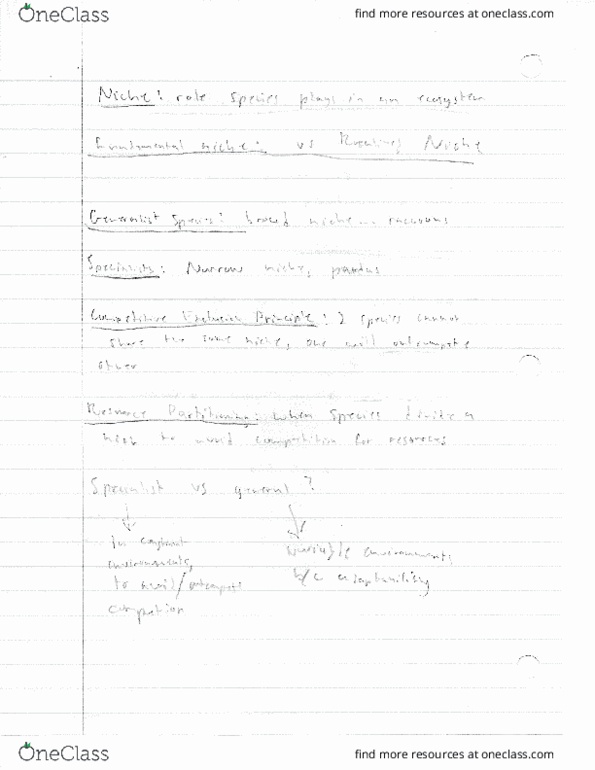 OneClass
find more resources at oneclass.com
Niche: role species plays in an ecosystem
Fundamental niche: vs Realized Niche
Generalist Species: broad niche... raccoons
Specialists: Narrow niche, pandas
Competitive Exclusion Principle: 2 species cannot
share the same niche, one will outcompete
other
Resource Partitioning: when species divide a
nich to avoid competition for resources
Specialist vs general?
In constant
environments,
to avoid/outcompete
competition
variable environments
b/c adaptability
OneClass
find more resources at oneclass.com